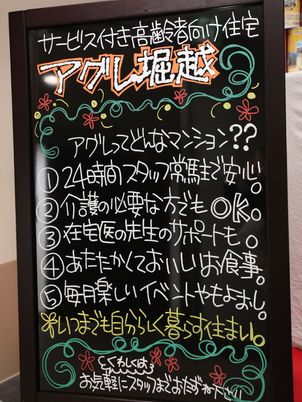 サービス付き高齢者向け住宅
アグレ堀越
アグレってどんなマンション??
①24時間スタッフ常駐で安心。
②介護の必要な方でもOK。
③在宅医の先生のサポートも。
④あたたかくておいしいお食事。
⑤毎月楽しいイベントやもよおし。
いつまでも自分らしく暮らす住まい。
くわしくは
お気軽にスタッフまでおたずね下さい